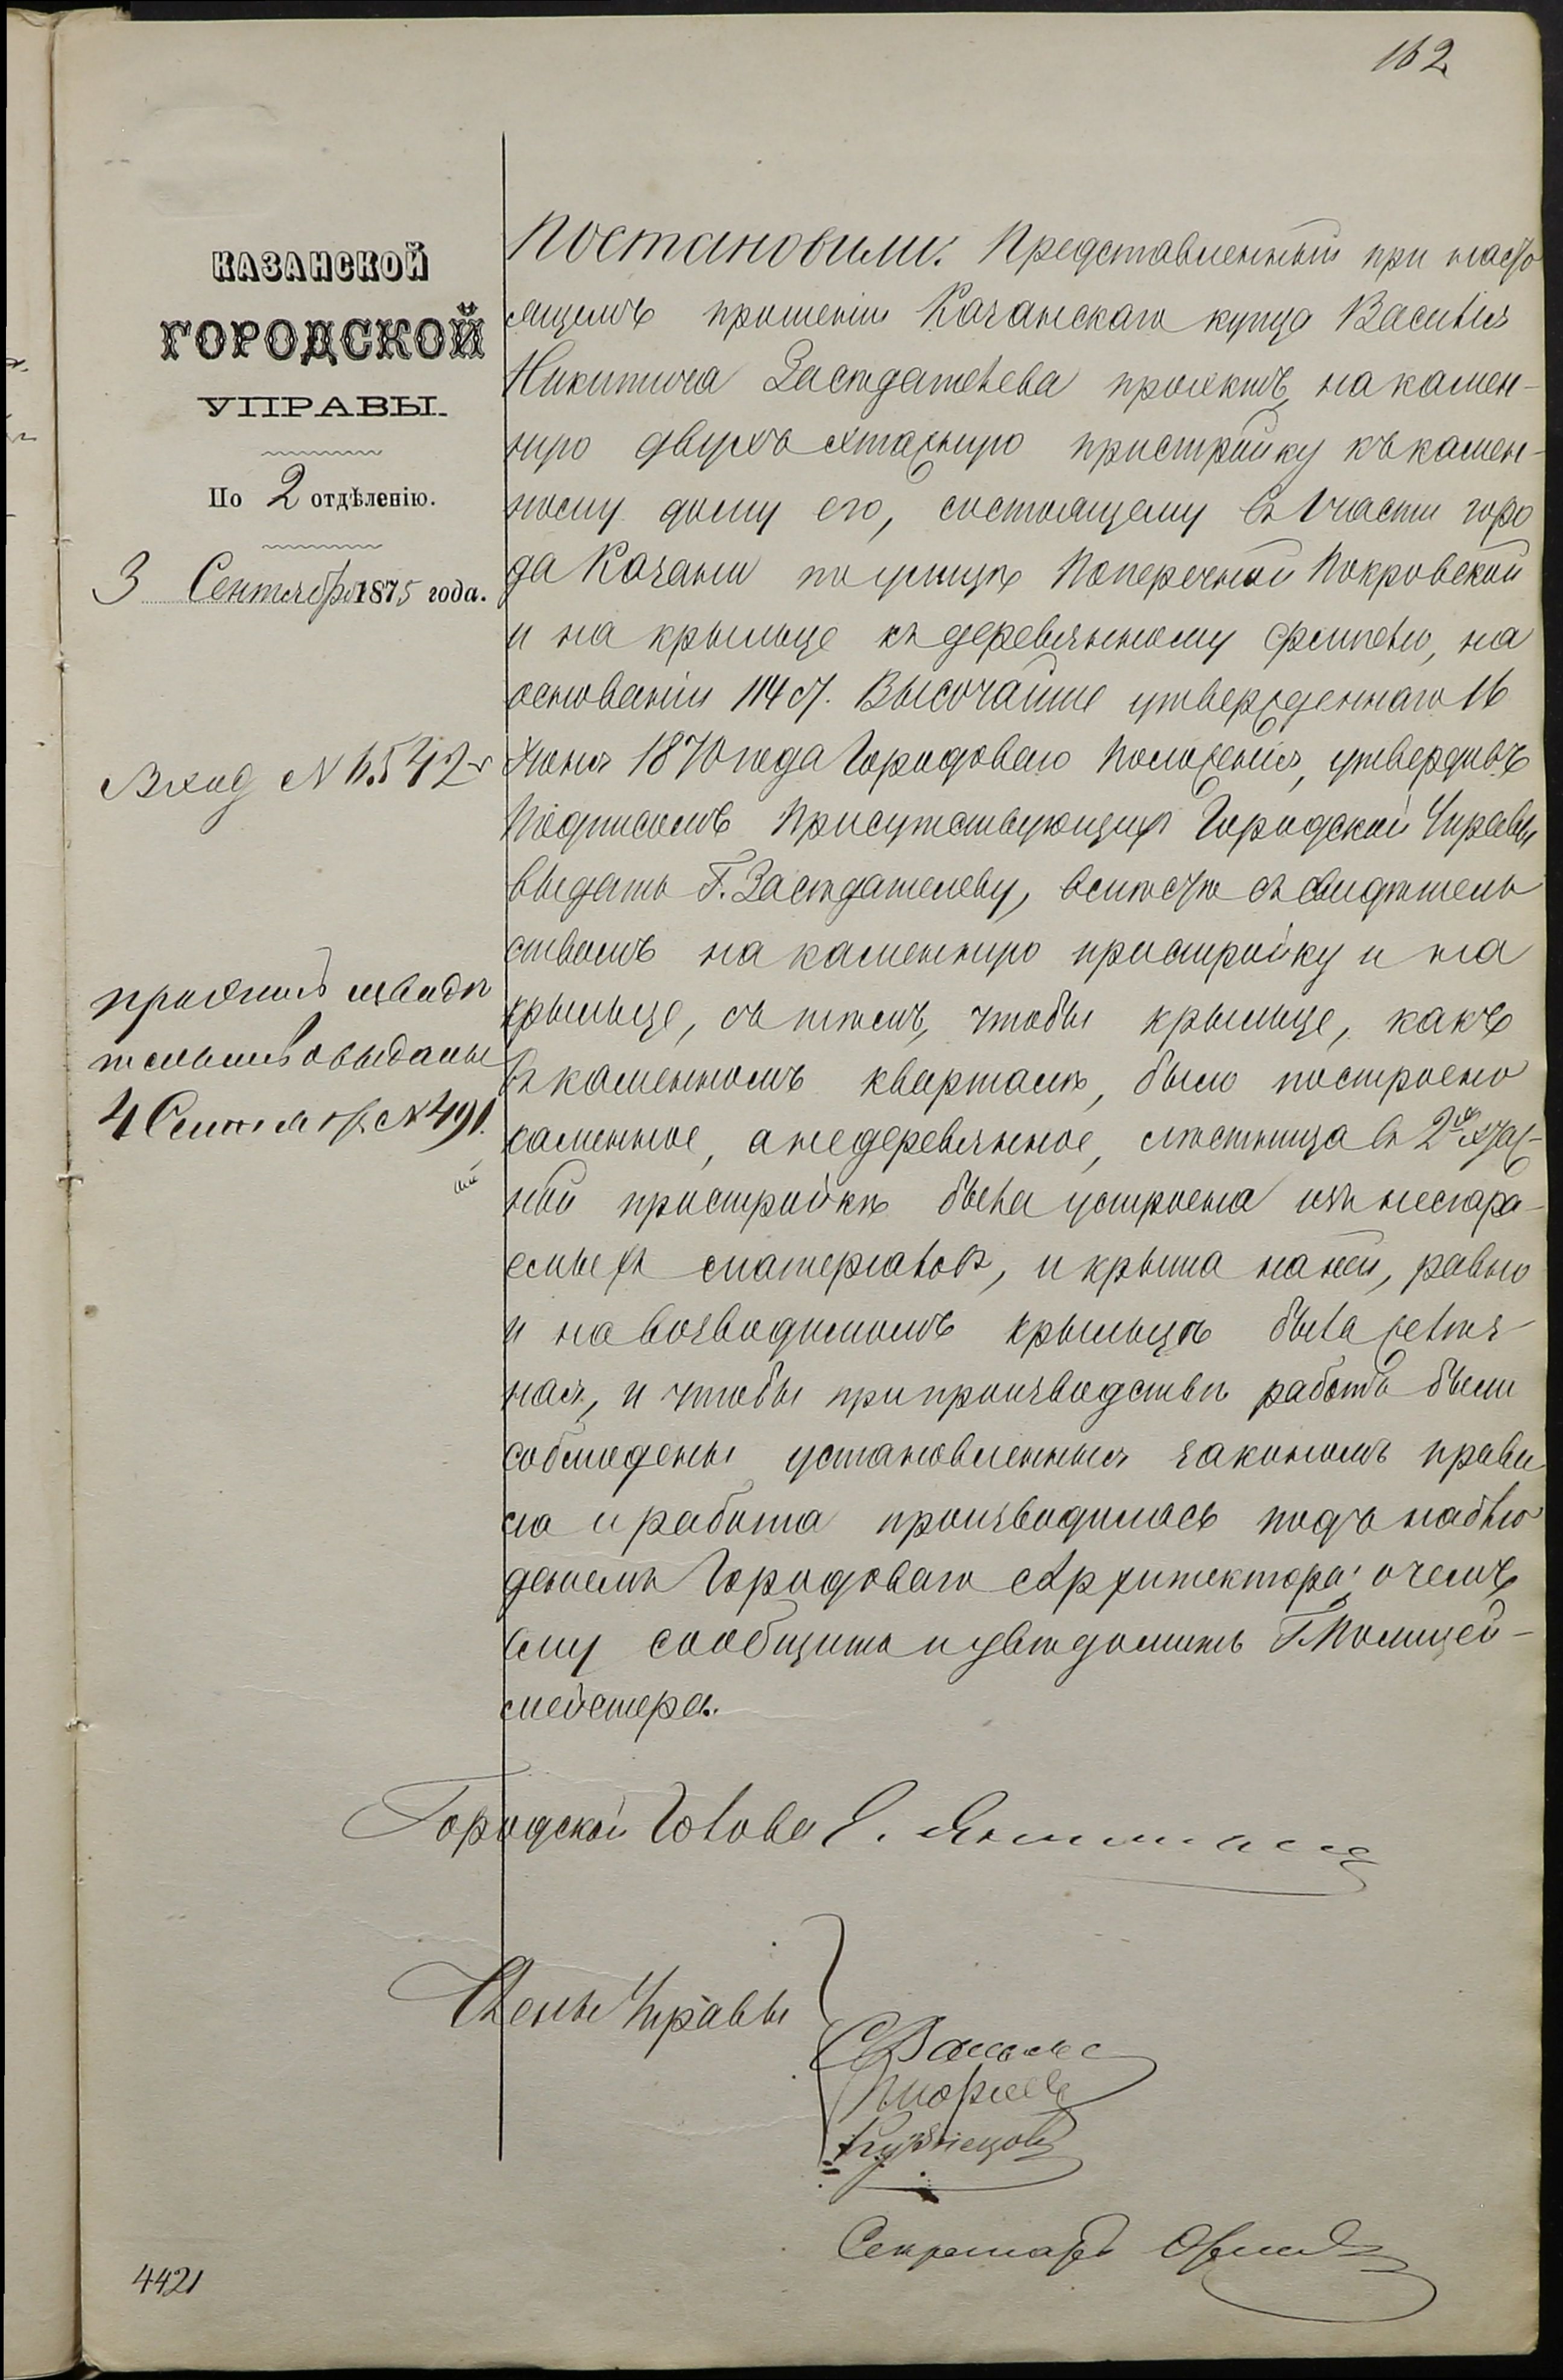 162
КАЗАНСКОЙ
ГОРОДСКОЙ
УПРАВЫ.
По 2 отдѣленію.
3 Сентября 1875 года.
Вход № 6542
проэктъ и свидѣ
тельство выданы
4 Сентября № 491.
Постановили: Представленный при насто
ящемъ прошеніи Казанскаго купца Василія
Никитича Застдателева проэктъ, на камен-
ную двухъ этажную пристройку къ камен-
ному дому его, состоящему въ 1 части горо
да Казани по улицѣ Поперечной Покровской
и на крыльце къ деревянному флигелю, на
основаніи 114 ст. Высочайше утвержденнаго 16
Іюня 1870 года Городоваго Положенія, утвердивъ
подписомъ Присутствующихъ Городской Управы
выдать Г. Застдателеву, вмѣстѣ съ свидѣтель
ствомъ на каменную пристройку и на
крыльце, съ тѣмъ, чтобы крыльце, какъ
въ каменномъ кварталѣ, было построено
каменное, а не деревянное, лѣстница въ 2хъ этаж-
ной пристройкѣ была устроена изъ несгара-
емыхъ матерьаловъ, и крыша на ней, равно
и на возводимомъ крыльцѣ была желѣз-
ная, и чтобы при производствѣ работъ были
соблюдены установленныя закономъ прави
ла и работа производилась подъ наблю
деніемъ Городоваго Архитектора; о чемъ
ему сообщить и увѣдомить Г. Полицей-
мейстера.
Городской Голова Е.
Члены Управы
Кузнецовъ
Секретарь
4421